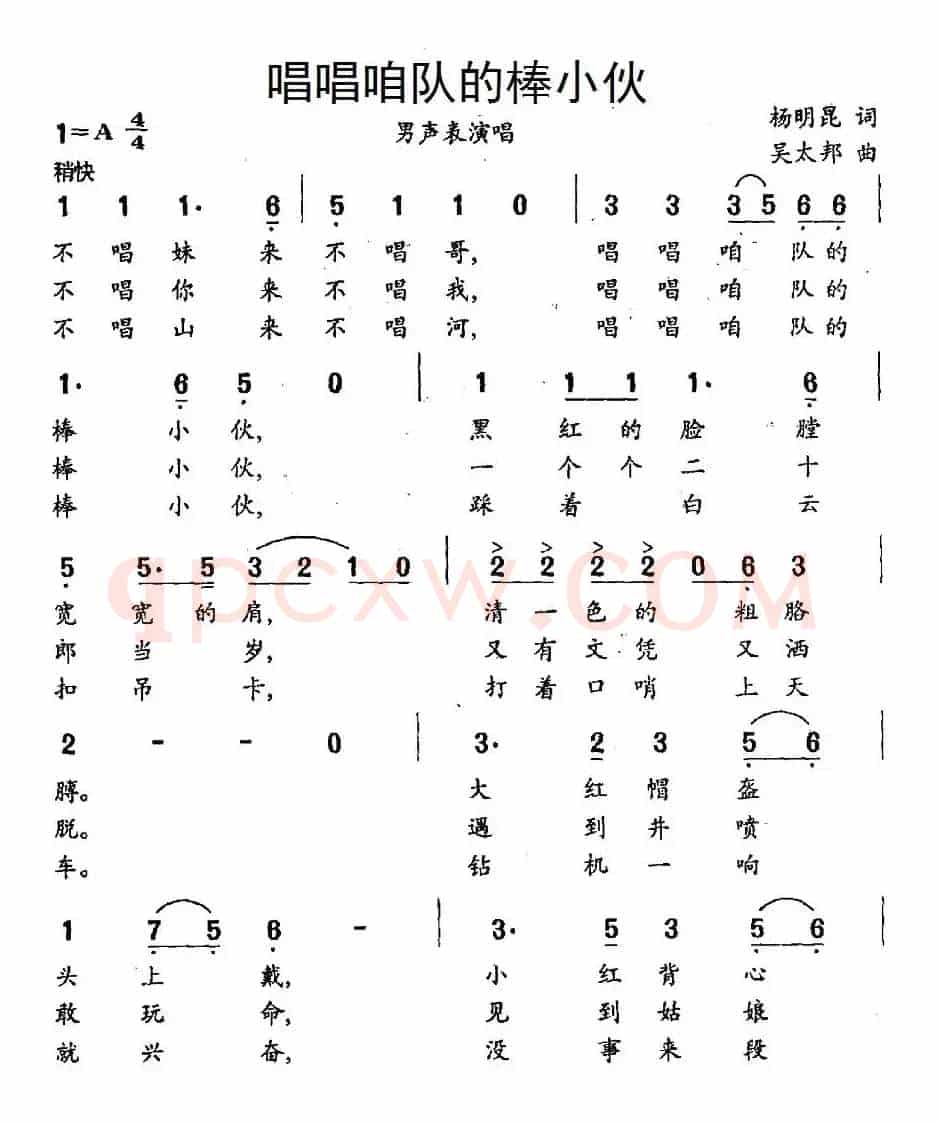 唱唱咱队的棒小伙
1=A 4/4
男声表演唱
杨明昆 词
吴太邦 曲
稍快
1 1 1· 6 | 5 1 1 0 | 3 3 3 5 6 6 |
不 唱 妹 来 不 唱 哥, 唱 唱 咱 队 的
不 唱 你 来 不 唱 我, 唱 唱 咱 队 的
不 唱 山 来 不 唱 河, 唱 唱 咱 队 的
1· 6 5 0 | 1 1 1 1· 6 |
棒 小 伙, 黑 红 的 脸 膛
棒 小 伙, 一 个 个 二 十
棒 小 伙, 踩 着 白 云
5 5· 5 3 2 1 0 | 2 2 2 2 0 6 3 |
宽 宽 的 肩, 清 一 色 的 粗 胳
郎 当 岁, 又 有 文 凭 又 洒
扣 吊 卡, 打 着 口 哨 上 天
2 - - 0 | 3· 2 3 5 6 |
膊。 大 红 帽 盔
脱。 遇 到 井 喷
车。 钻 机 一 响
1 7 5 6 - | 3· 5 3 5 6 |
头 上 戴, 小 红 背 心
敢 玩 命, 见 到 姑 娘
就 兴 奋, 没 事 来 段
qpcxw.com